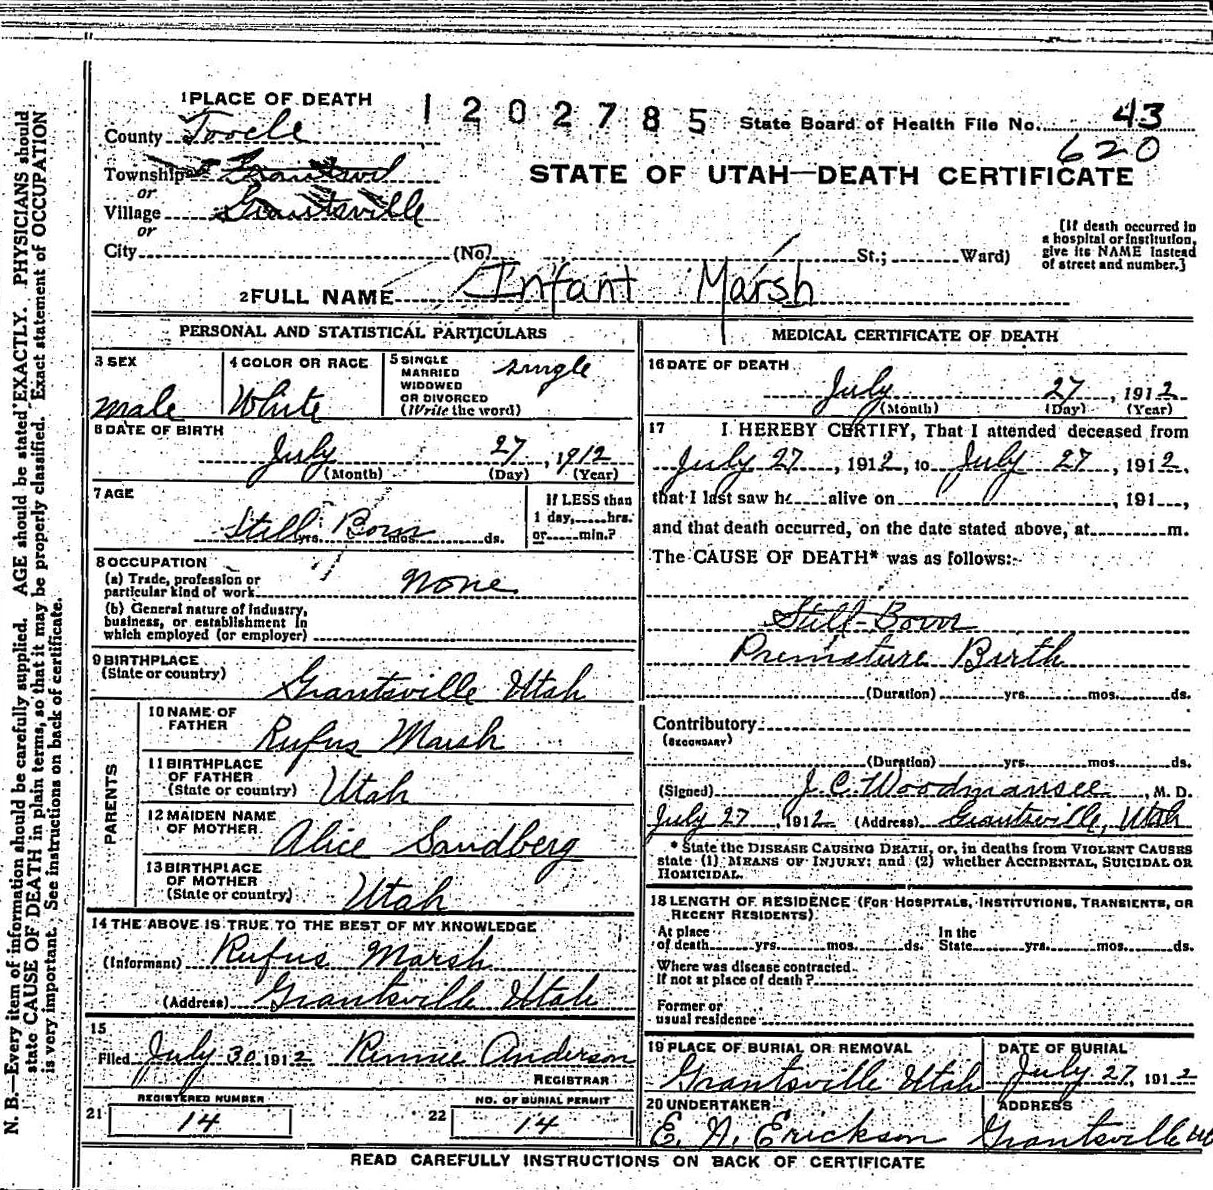 1 PLACE OF DEATH
1202785
State Board of Health File No. 43
620
County Tooele
Township
or
Village Grantsville
or
City (No. St.; Ward)
STATE OF UTAH—DEATH CERTIFICATE
[If death occurred in a hospital or institution, give its NAME instead of street and number.]
2 FULL NAME Infant Marsh
PERSONAL AND STATISTICAL PARTICULARS
3 SEX
male
4 COLOR OR RACE
White
5 SINGLE MARRIED WIDOWED OR DIVORCED (Write the word)
single
6 DATE OF BIRTH
July 27, 1912
(Month) (Day) (Year)
7 AGE
Still Born
yrs. mos. ds.
If LESS than 1 day, hrs. or min.?
8 OCCUPATION
(a) Trade, profession or particular kind of work none
(b) General nature of industry, business, or establishment in which employed (or employer)
9 BIRTHPLACE
(State or country) Grantsville Utah
PARENTS
10 NAME OF FATHER Rufus Marsh
11 BIRTHPLACE OF FATHER (State or country) Utah
12 MAIDEN NAME OF MOTHER Alice Sandberg
13 BIRTHPLACE OF MOTHER (State or country) Utah
14 THE ABOVE IS TRUE TO THE BEST OF MY KNOWLEDGE
(Informant) Rufus Marsh
(Address) Grantsville Utah
15
Filed July 30 1912 Anderson
REGISTRAR
21 REGISTERED NUMBER
14
22 NO. OF BURIAL PERMIT
14
MEDICAL CERTIFICATE OF DEATH
16 DATE OF DEATH
July 27, 1912
(Month) (Day) (Year)
17 I HEREBY CERTIFY, That I attended deceased from
July 27, 1912, to July 27, 1912,
that I last saw h alive on , 191 ,
and that death occurred, on the date stated above, at m.
The CAUSE OF DEATH* was as follows:
Still-Born
Premature Birth
(Duration) yrs. mos. ds.
Contributory
(SECONDARY)
(Duration) yrs. mos. ds.
(Signed) J. C. Woodmansee, M. D.
July 27, 1912 (Address) Grantsville, Utah
* State the DISEASE CAUSING DEATH, or, in deaths from VIOLENT CAUSES
state (1) MEANS OF INJURY; and (2) whether ACCIDENTAL, SUICIDAL OR
HOMICIDAL.
18 LENGTH OF RESIDENCE (FOR HOSPITALS, INSTITUTIONS, TRANSIENTS, OR
RECENT RESIDENTS)
At place of death yrs. mos. ds. In the State yrs. mos. ds.
Where was disease contracted
If not at place of death?
Former or
usual residence
19 PLACE OF BURIAL OR REMOVAL
Grantsville Utah
DATE OF BURIAL
July 27, 1912
20 UNDERTAKER
Erickson
ADDRESS
Grantsville Ut
READ CAREFULLY INSTRUCTIONS ON BACK OF CERTIFICATE
N. B.—Every item of information should be carefully supplied. AGE should be stated EXACTLY. PHYSICIANS should
state CAUSE OF DEATH in plain terms, so that it may be properly classified. Exact statement of OCCUPATION
is very important. See instructions on back of certificate.